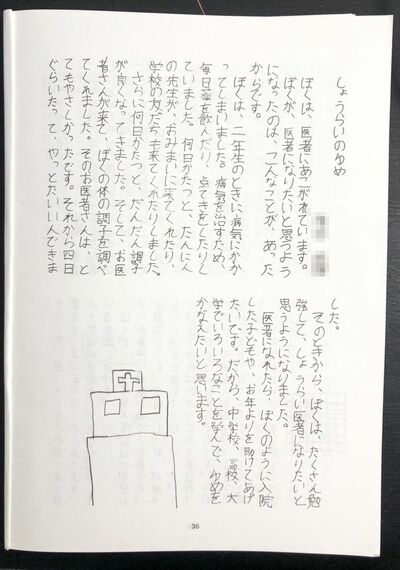 しょうらいのゆめ
ぼくは、医者にあこがれています。
ぼくが、医者になりたいと思うよう
になったのは、こんなことが、あった
からです。
ぼくは、二年生のときに病気にかか
ってしまいました。病気を治すため、
毎日薬を飲んだり、点てきをしたりし
ていました。何日かたつと、たんにん
の先生が、おみまいに来てくれたり、
学校の友だちも来てくれたりしました。
さらに何日かたつと、だんだん調子
が良くなってきました。そして、お医
者さんが来て、ぼくの体の調子を調べ
てくれました。そのお医者さんは、と
てもやさしかったです。それから四日
ぐらいたって、やっとたいいんできま
した。
そのときから、ぼくは、たくさん勉
強して、しょうらい医者になりたいと
思うようになりました。
医者になれたら、ぼくのように入院
した子どもや、お年よりを助けてあげ
たいです。だから、中学校、高校、大
学でいろいろなことを学んで、ゆめを
かなえたいと思います。
36